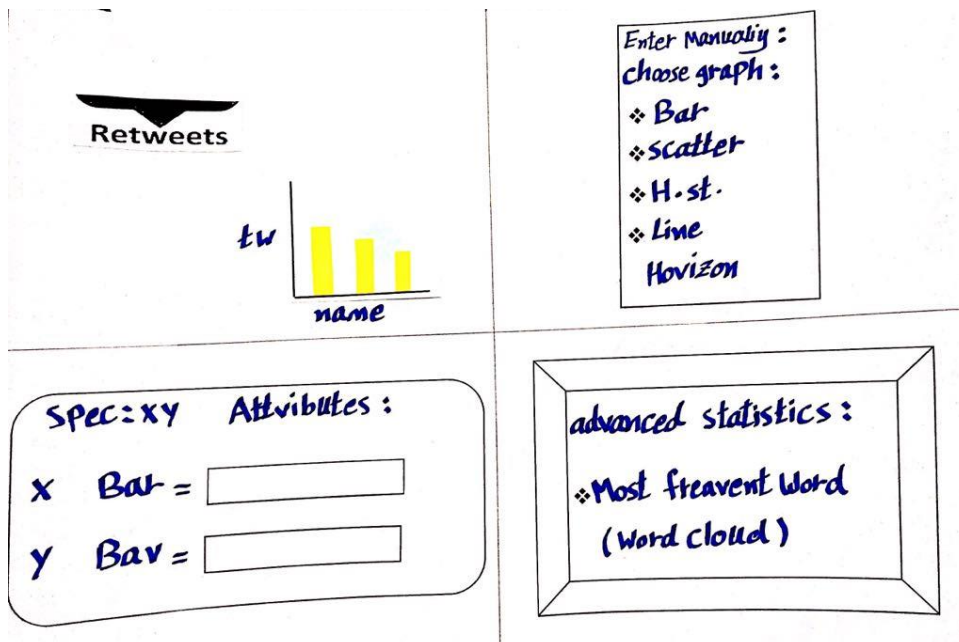 Retweets
tw
name
Enter Manualiy :
choose graph :
❖ Bar
❖ scatter
❖ H.st.
❖ Line
Hovizon
Spec: xy Attvibutes :
x Bar =
y Bav =
advanced statistics :
❖ Most freavent Word
(Word Cloud)